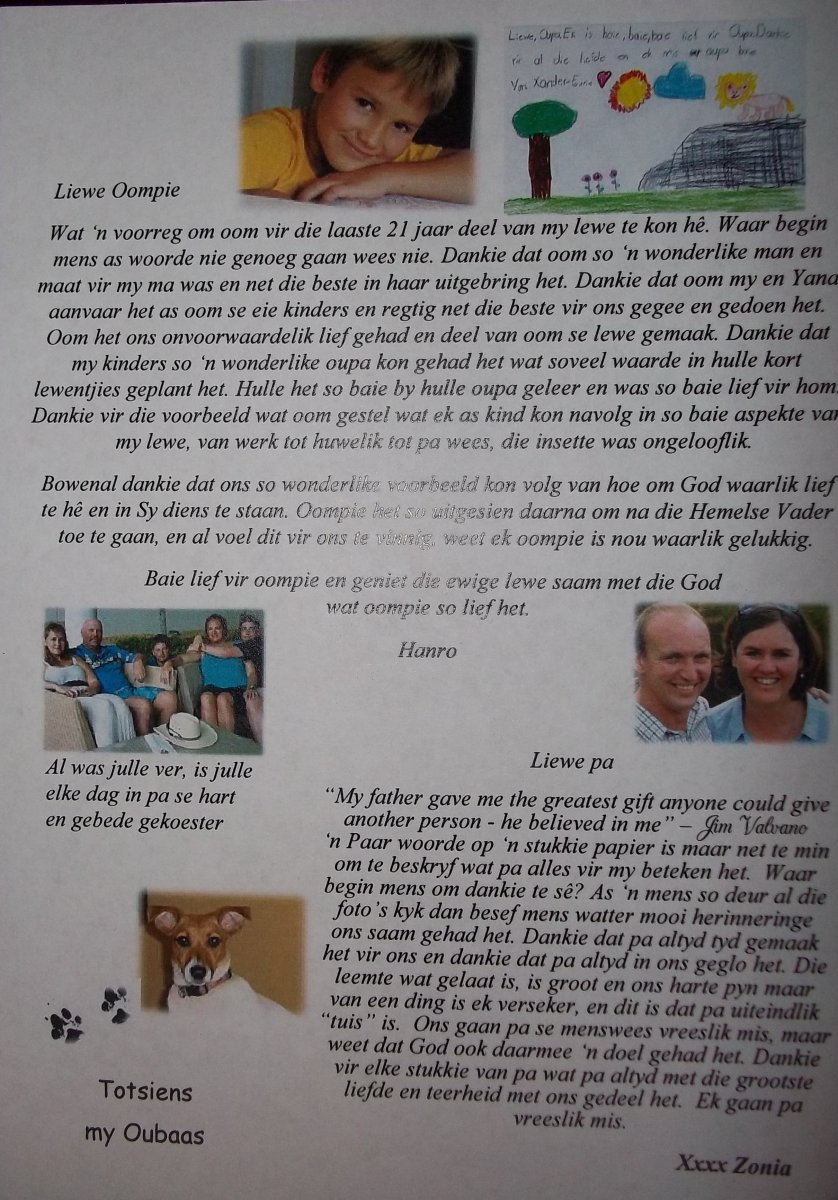 Liewe, Oupa. Ek is baie, baie, bae lief vir Oupa. Dankie
vir al die liefde en ek mis oupa baie
Van Xander-Emile
Liewe Oompie
Wat ‘n voorreg om oom vir die laaste 21 jaar deel van my lewe te kon hê. Waar begin
mens as woorde nie genoeg gaan wees nie. Dankie dat oom so ‘n wonderlike man en
maat vir my ma was en net die beste in haar uitgebring het. Dankie dat oom my en Yana
aanvaar het as oom se eie kinders en regtig net die beste vir ons gegee en gedoen het.
Oom het ons onvoorwaardelik lief gehad en deel van oom se lewe gemaak. Dankie dat
my kinders so ‘n wonderlike oupa kon gehad het wat soveel waarde in hulle kort
lewentjies geplant het. Hulle het so baie by hulle oupa geleer en was so baie lief vir hom.
Dankie vir die voorbeeld wat oom gestel wat ek as kind kon navolg in so baie aspekte van
my lewe, van werk tot huwelik tot pa wees, die insette was ongelooflik.
Bowenal dankie dat ons so wonderlike voorbeeld kon volg van hoe om God waarlik lief
te hê en in Sy diens te staan. Oompie het so uitgesien daarna om na die Hemelse Vader
toe te gaan, en al voel dit vir ons te vinnig, weet ek oompie is nou waarlik gelukkig.
Baie lief vir oompie en geniet die ewige lewe saam met die God
wat oompie so lief het.
Hanro
Al was julle ver, is julle
elke dag in pa se hart
en gebede gekoester
Liewe pa
“My father gave me the greatest gift anyone could give
another person - he believed in me” – Jim Valvano
‘n Paar woorde op ‘n stukkie papier is maar net te min
om te beskryf wat pa alles vir my beteken het. Waar
begin mens om dankie te sê? As ‘n mens so deur al die
foto’s kyk dan besef mens watter mooi herinneringe
ons saam gehad het. Dankie dat pa altyd tyd gemaak
het vir ons en dankie dat pa altyd in ons geglo het. Die
leemte wat gelaat is, is groot en ons harte pyn maar
van een ding is ek verseker, en dit is dat pa uiteindlik
“tuis” is. Ons gaan pa se menswees vreeslik mis, maar
weet dat God ook daarmee ‘n doel gehad het. Dankie
vir elke stukkie van pa wat pa altyd met die grootste
liefde en teerheid met ons gedeel het. Ek gaan pa
vreeslik mis.
Xxxx Zonia
Totsiens
my Oubaas